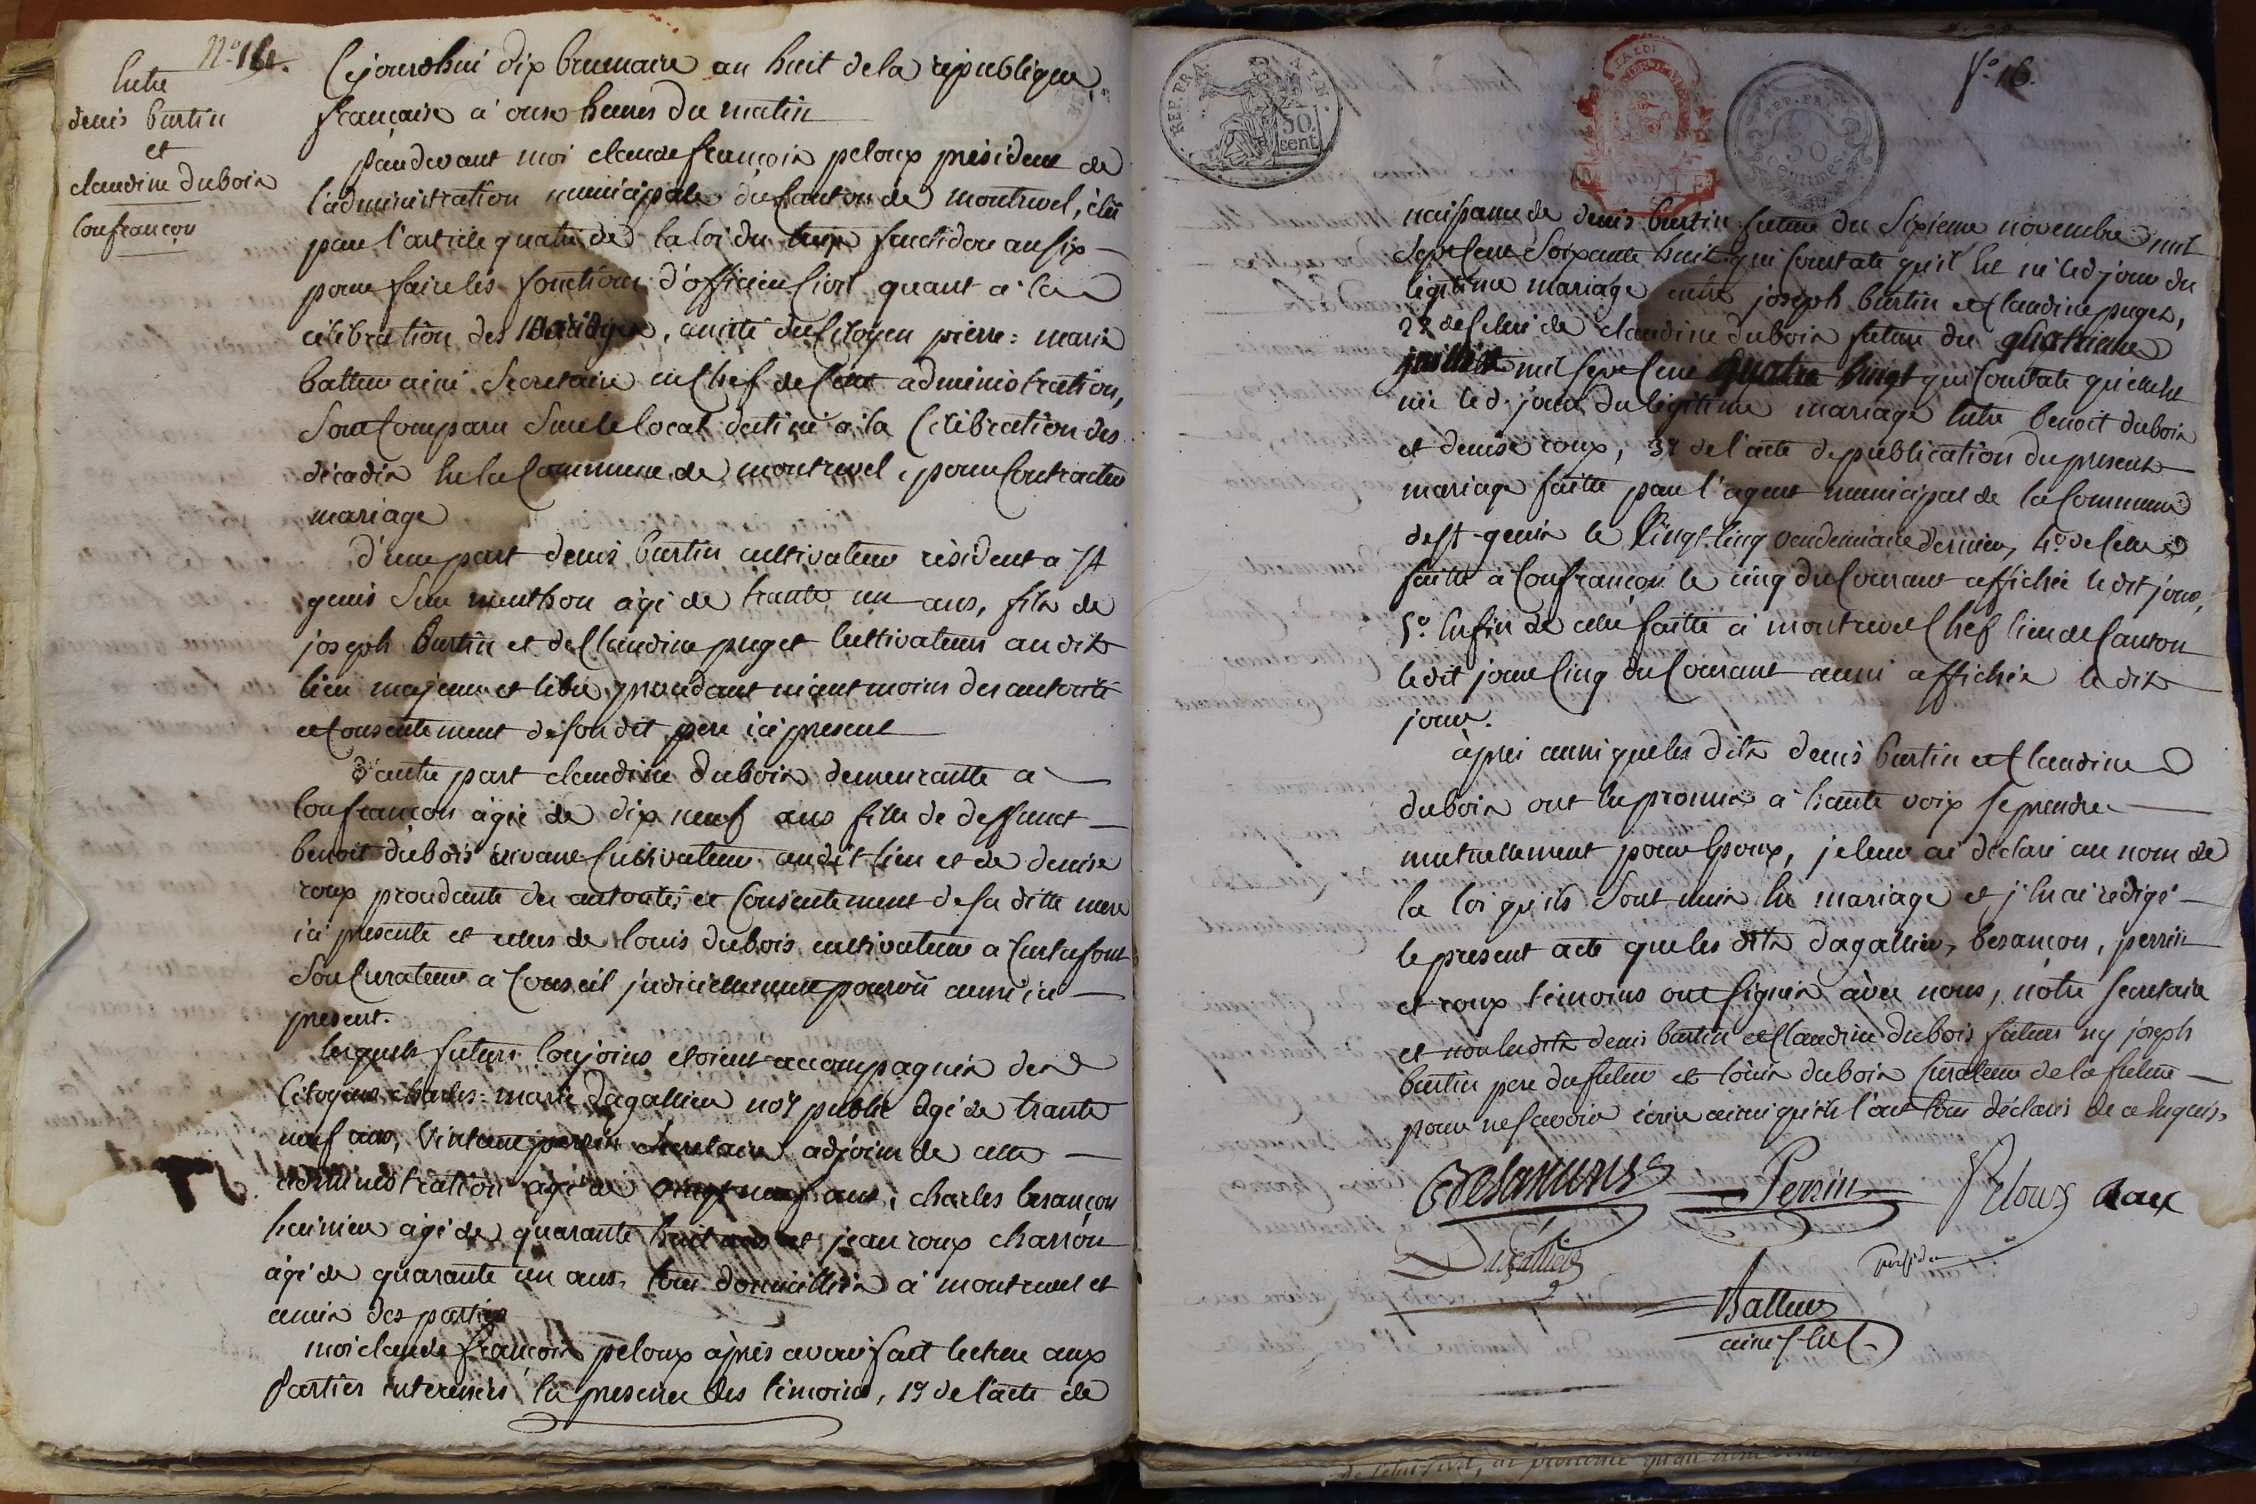 N.o 16.
Entre
denisburtin
et
claudine dubois
Confrançon
Cejourdhui dix brumaire an huit de la republique
française à onze heures du matin
pardevant moi claude françois peloux président de
l'administration municipale du canton de montrevel, élu
par l'article quatre de la loi du treize fructidor an six
pour faire les fonctions d'officier civil quant à la
célébration des mariages, assité du citoyen pierre = marie
batteur ainé Secretaire en chef de cette administration,
Sont comparu Sur le local destiné a la Célébration des
décadis en la Commune de montrevel, pour Contracter
mariage
d'une part denis burtin cultivateur résident a St
genis Sur menthon âgé de trante un ans, fils de
joseph burtin et de Claudine puget Cultivateurs audit
lieu majeur et libre, procedant néantmoins des autorité
et consentement de son dit pere ici présent
D'autre part claudine dubois demeurante a
Confrançon âgée de dix neuf ans fille de deffunct
benoit dubois vivant Cultivateur audit lieu et de denise
roux procédante des autorité et Consentement de sa ditte mere
ici présente et celui de louis dubois cultivateur a Curtafont
Son Curateur a Conseil judiciairement pourvu aussi ici
présent.
lesquels futurs Conjoins etoient accompagnés des
Citoyens charles = marie Dagallier nore public âgé de trante
neuf ans, Vincent perrin Secretaire adjoint de cette
administration âgé de vingt neuf ans, charles besançon
huissier âgé de quarante huit ans et jean roux charron
âgé de quarante un ans, tous domiciliés à montrevel et
amis des parties
moi claude françois peloux après avoir fait lecture aux
Parties interessées en présence des témoins, 1o de l'acte de
fo. 16.
REP. FRA.
50
cent
REP. FRA.
50
Centimes
naissance de denis burtin futur du Sixieme novembre mil
Sept Cent Soixante huit qui Constate qu'il est né led jour du
légitime mariage entre joseph burtin et Claudine puget,
2o de Celui de claudine dubois future du quatrieme
juillet mil Sept Cent quatre vingt qui Constate qu'elle est
née led. jour du légitime mariage Entre benoit dubois
et denise roux, 3o de l'acte de publication du présent
mariage faitte par l'agent municipal de la Commune
de St genis le Vingt cinq vendémiaire dernier, 4o de Celle
faitte à Confrançon le cinq du Courant affichée ledit jour,
5o Enfin de celle faitte à montrevel Chef lieu de Canton
ledit jour Cinq du Courant aussi affichée ledit
jour.
après aussi que les dits denis burtin et Claudine
dubois ont eu promis à haute voix se prendre
mutuellement pour Epoux, je leur ai déclaré au nom de
la loi qu'ils Sont unis en mariage et j'en ai rédigé
le présent acte que les dits dagallier, besançon, perrin
et roux témoins ont signés avec nous, notre Secretaire
et non lesdits denis burtin et Claudine dubois futurs ny joseph
burtin pere du futur et louis dubois Curateur de la future
pour ne savoir écrire ainsi qu'ils l'ont tous déclarés de ce Enquis,
Perrin
Peloux
Roux
Dagallier
présidt
Batteur
ainé